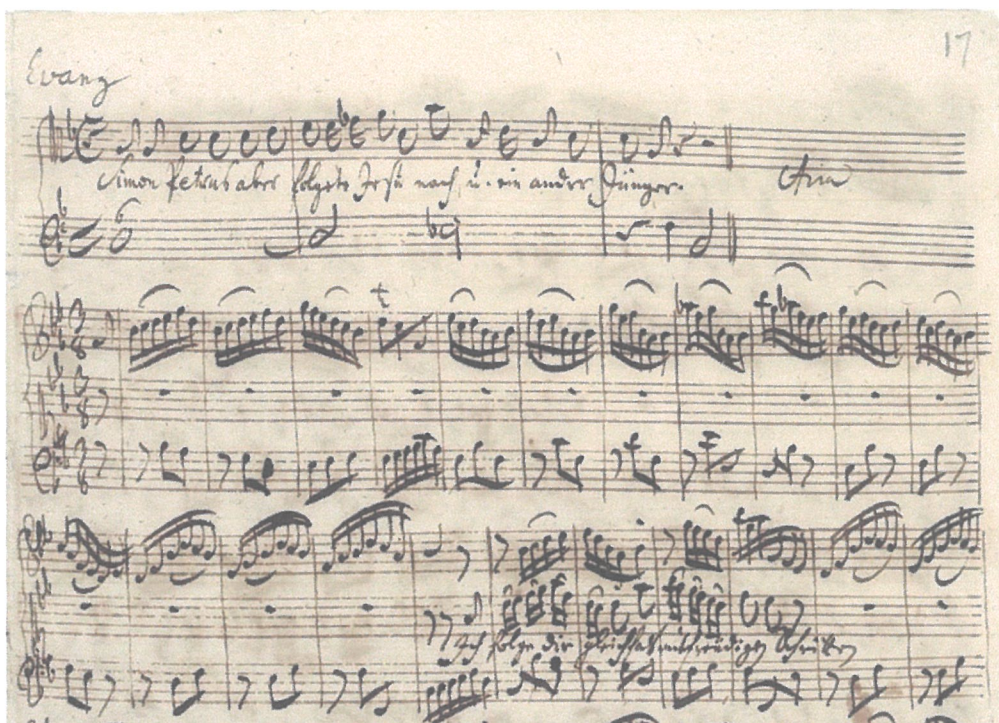 17
Evang
Simon Petrus aber folgete Jesu nach, u. ein ander Jünger.
Aria
Ich folge dir gleichfals mit freudigen Schritten